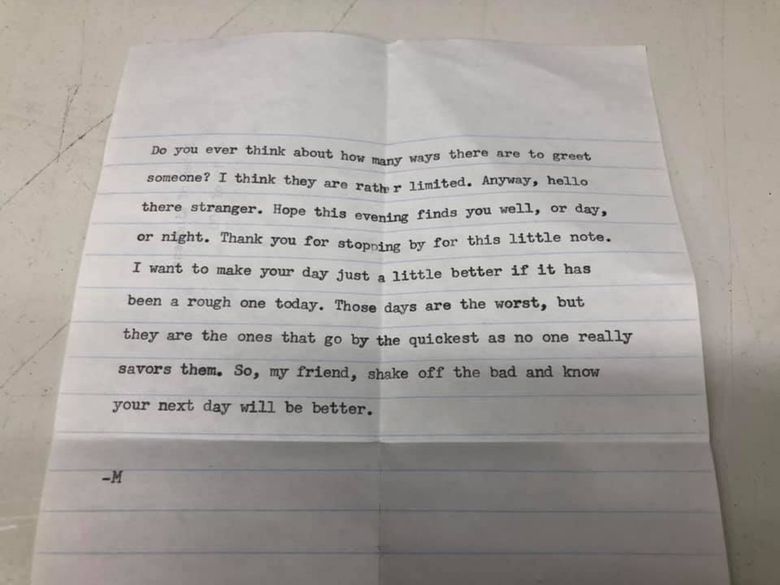 Do you ever think about how many ways there are to greet
someone? I think they are rather limited. Anyway, hello
there stranger. Hope this evening finds you well, or day,
or night. Thank you for stopping by for this little note.
I want to make your day just a little better if it has
been a rough one today. Those days are the worst, but
they are the ones that go by the quickest as no one really
savors them. So, my friend, shake off the bad and know
your next day will be better.
-M